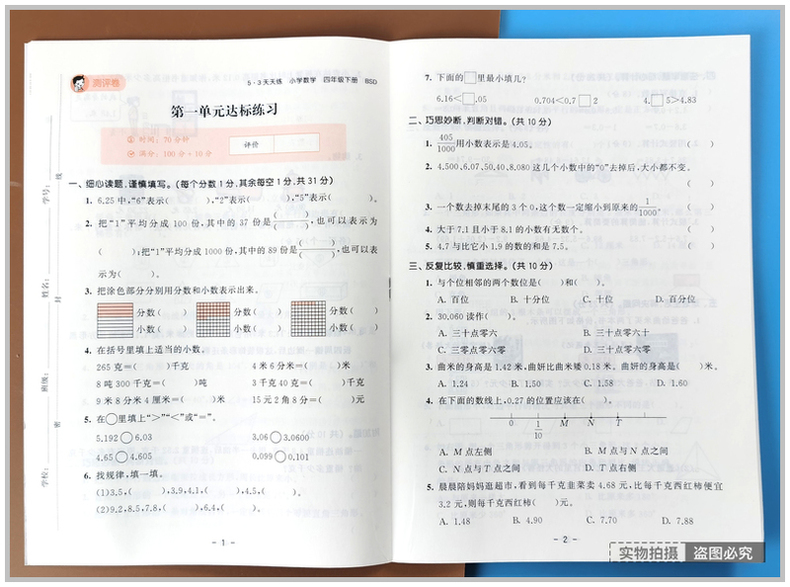 测评卷
5·3天天练 小学数学 四年级下册 BSD
第一单元达标练习
时间:70分钟
满分:100分+10分
评价
学号:
姓名:
班级:
学校:
线
封
密
一、细心读题,谨慎填写。(每个分数1分,其余每空1分,共31分)
1. 6.25中,“6”表示( ),“2”表示( ),“5”表示( )。
2. 把“1”平均分成100份,其中的37份是( )/( ),也可以表示为
( );把“1”平均分成1000份,其中的89份是( )/( ),也可以表
示为( )。
3. 把涂色部分分别用分数和小数表示出来。
分数( ) 分数( ) 分数( )
小数( ) 小数( ) 小数( )
4. 在括号里填上适当的小数。
265克=( )千克 4米6分米=( )米
8吨300千克=( )吨 3千克40克=( )千克
9米8分米4厘米=( )米 15元2角8分=( )元
5. 在○里填上“>”“<”或“=”。
5.192○6.03 3.06○3.0600
4.65○4.605 0.099○0.101
6. 找规律,填一填。
(1)3.5,( ),3.9,4.1,( ),4.5,( )。
(2)9.2,8.5,7.8,( ),6.4,( )。
- 1 -
7. 下面的□里最小填几?
6.16<□.05 0.704<0.7□2 4.□5>4.83
二、巧思妙断,判断对错。(共10分)
1. 405/1000用小数表示是4.05。 ( )
2. 4.500,6.07,50.40,8.080这几个小数中的“0”去掉后,大小都不变。
( )
3. 一个数去掉末尾的3个0,这个数一定缩小到原来的1/1000。 ( )
4. 大于7.1且小于8.1的小数有无数个。 ( )
5. 4.7与比它小1.9的数的和是7.5。 ( )
三、反复比较,慎重选择。(共10分)
1. 与个位相邻的两个数位是( )和( )。
A. 百位 B. 十分位 C. 十位 D. 百分位
2. 30.060读作( )。
A. 三十点零六 B. 三十点零六十
C. 三零点零六零 D. 三十点零六零
3. 曲米的身高是1.42米,曲妍比曲米矮0.18米。曲妍的身高是( )米。
A. 1.24 B. 1.50 C. 1.58 D. 1.60
4. 在下面的数线上,0.27的位置应该在( )。
0 1/10 M N T
A. M点左侧 B. M点与N点之间
C. N点与T点之间 D. T点右侧
5. 晨晨陪妈妈逛超市,看到每千克韭菜卖4.68元,比每千克西红柿便宜
3.2元,则每千克西红柿( )元。
A. 1.48 B. 4.90 C. 7.70 D. 7.88
- 2 -
实物拍摄 盗图必究